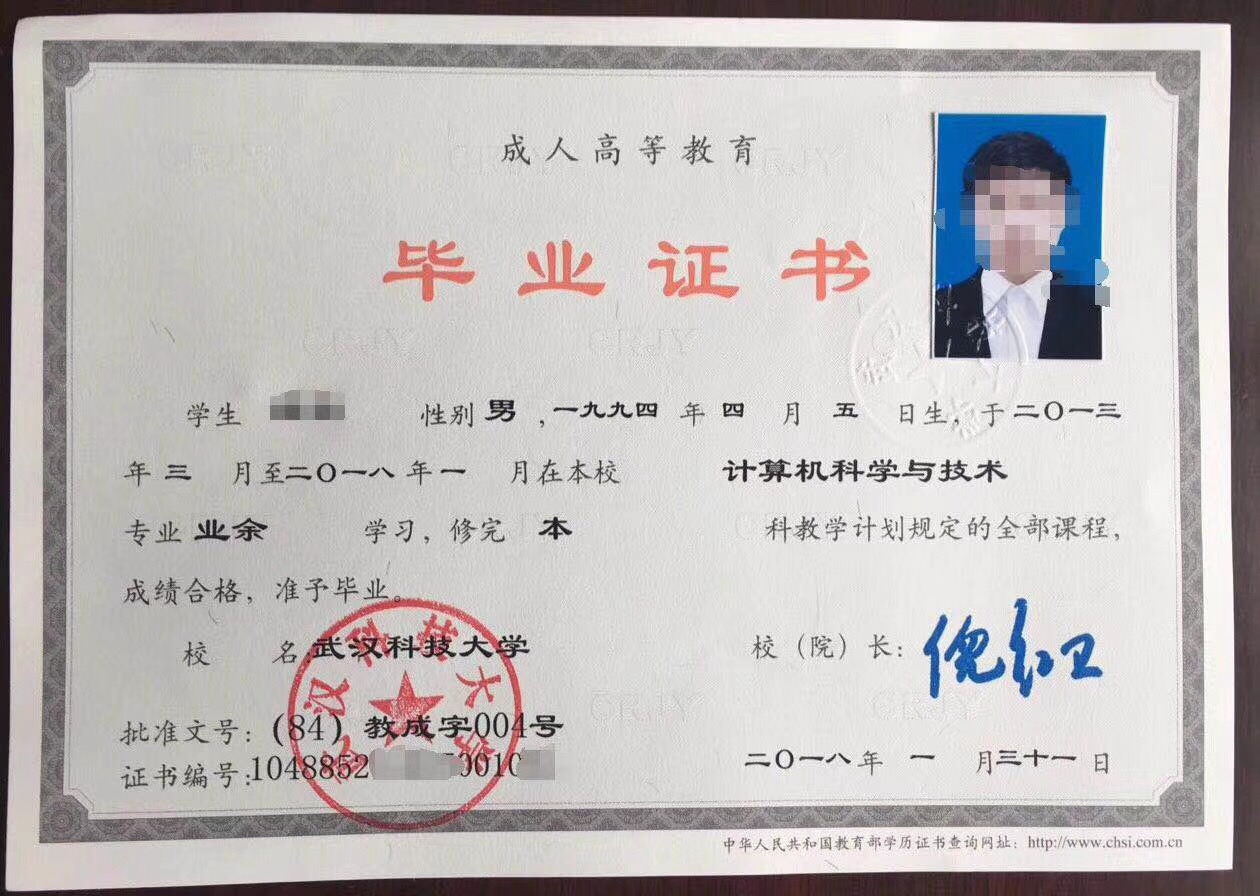 成人高等教育
毕业证书
学生 性别 男 ,一九九四 年 四 月 五 日生, 于二〇一三
年 三 月至二〇一八年 一 月在本校 计算机科学与技术
专业 业余 学习, 修完 本 科教学计划规定的全部课程,
成绩合格, 准予毕业。
校 名:武汉科技大学 校（院）长: 倪红卫
武汉科技大学
批准文号: (84) 教成字004号
证书编号:1048852 50010 二〇一八年 一 月三十一日
中华人民共和国教育部学历证书查询网址: http://www.chsi.com.cn